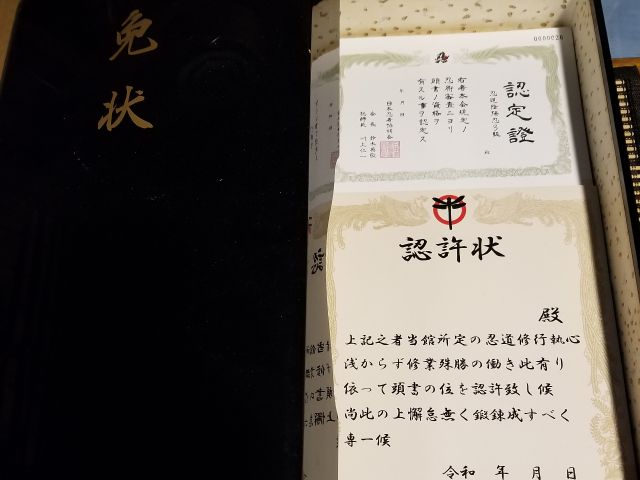 免状
0000026
認定證
忍道陰陽忍弓級
殿
右者本会規定ノ
忍術審査ニヨリ
頭書ノ資格ヲ
有スル事ヲ認定ス
年 月 日
日本忍者協議会
会長 鈴木英敬
総師範 川上仁一
認許状
殿
上記之者当館所定の忍道修行執心
浅からず修業殊勝の働き此有り
依って頭書の位を認許致し候
尚此の上懈怠無く鍛錬成すべく
専一候
令和 年 月 日